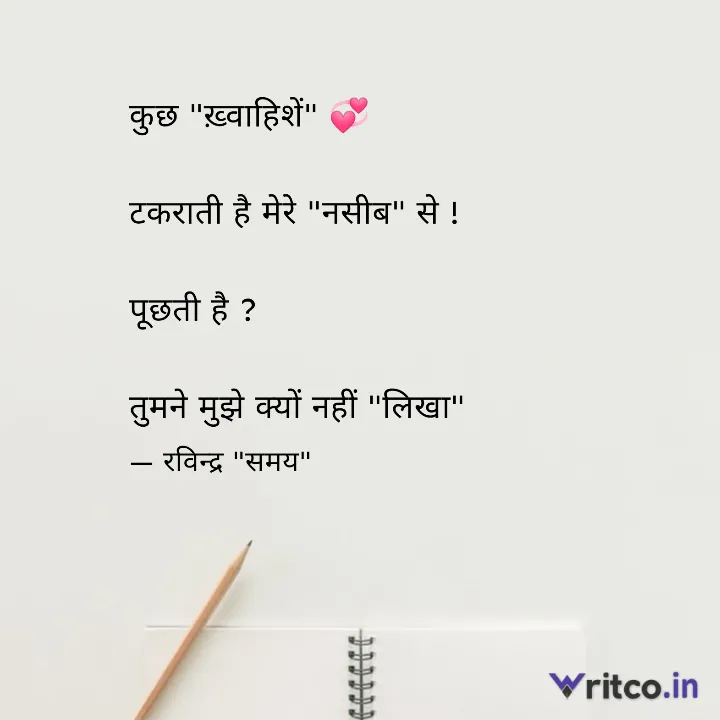 कुछ "ख़्वाहिशें" 💞
टकराती है मेरे "नसीब" से !
पूछती है ?
तुमने मुझे क्यों नहीं "लिखा"
— रविन्द्र "समय"
Writco.in